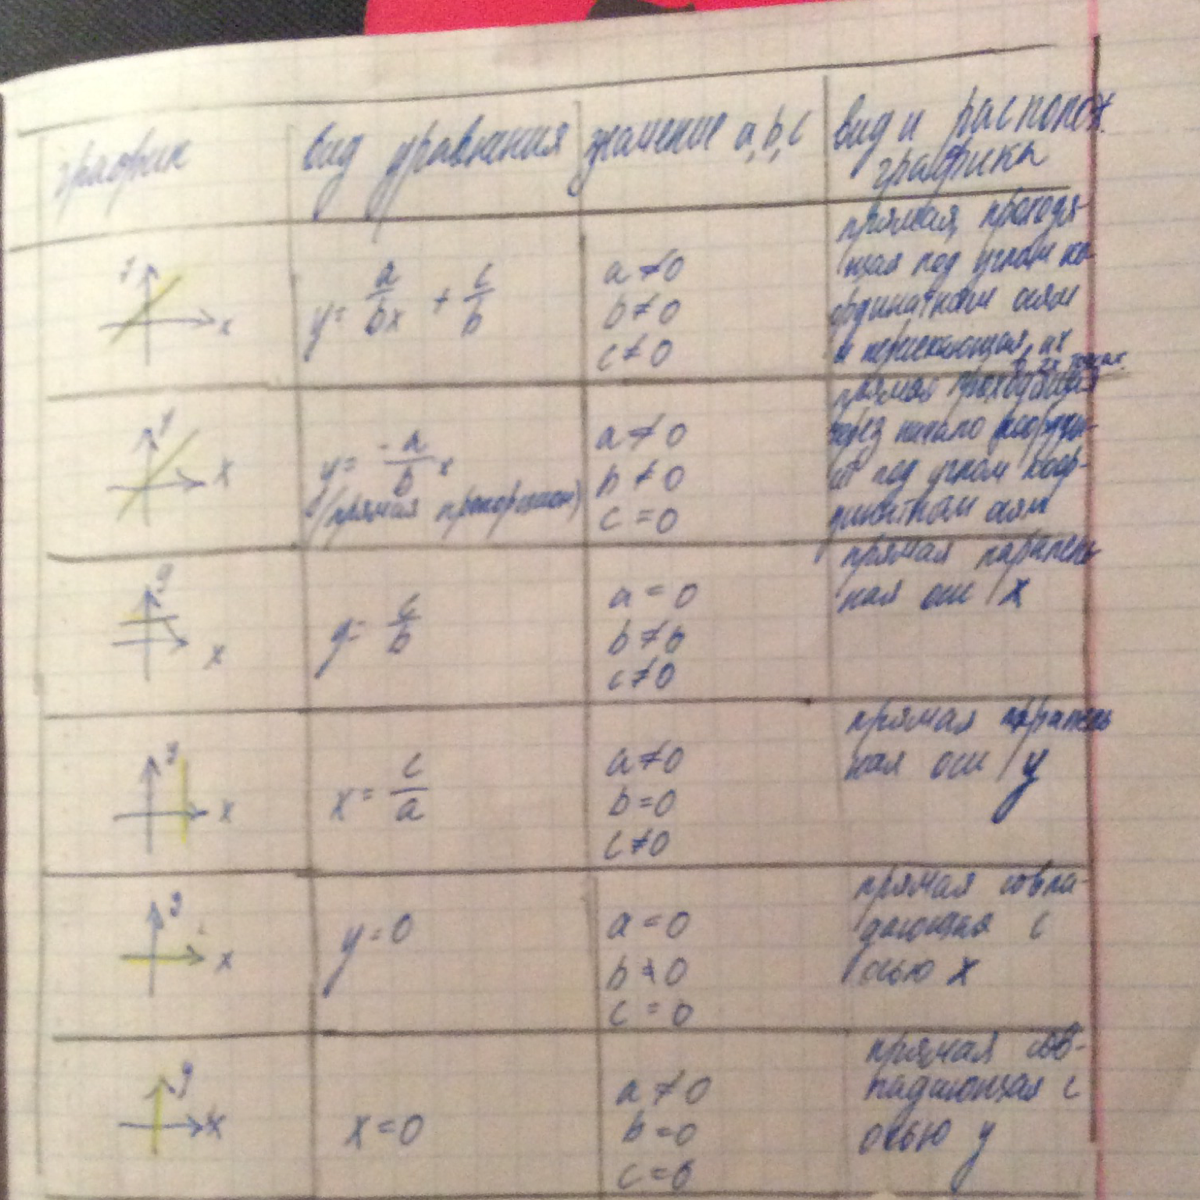 график вид уравнения значение a, b, c вид и располож.
графика
y x y = a/bx + c/b a ≠ 0 b ≠ 0 c ≠ 0
прямая, проходя-
щая под углом ко-
ординатным осям
и пересекающая их
в 2х точках.
y x y = -a/b x (прямая пропорцион) a ≠ 0 b ≠ 0 c = 0
прямая проходящая
через начало коорди-
нат под углом коор-
динатным осям
y x y = c/b a = 0 b ≠ b c ≠ 0
прямая паралель
ная оси x
y x x = c/a a ≠ 0 b = 0 c ≠ 0
прямая паралель
ная оси y
y x y = 0 a = 0 b ≠ 0 c = 0
прямая совпа-
дающая с
осью x
y x x = 0 a ≠ 0 b = 0 c = 0
прямая сов-
падающая с
осью y